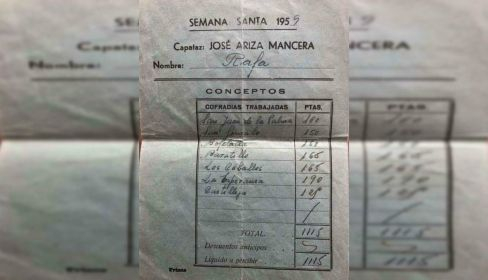 SEMANA SANTA 1959
Capataz: JOSÉ ARIZA MANCERA
Nombre: Rafa
CONCEPTOS
COFRADIAS TRABAJADAS PTAS.
San Juan de la Palma 160
San Gonzalo 150
Bofetada 150
Baratillo 165
Los Caballos 165
La Esperanza 190
Castilleja 125
TOTAL 1115
Descuentos anticipos
Líquido a percibir 1115
Triana